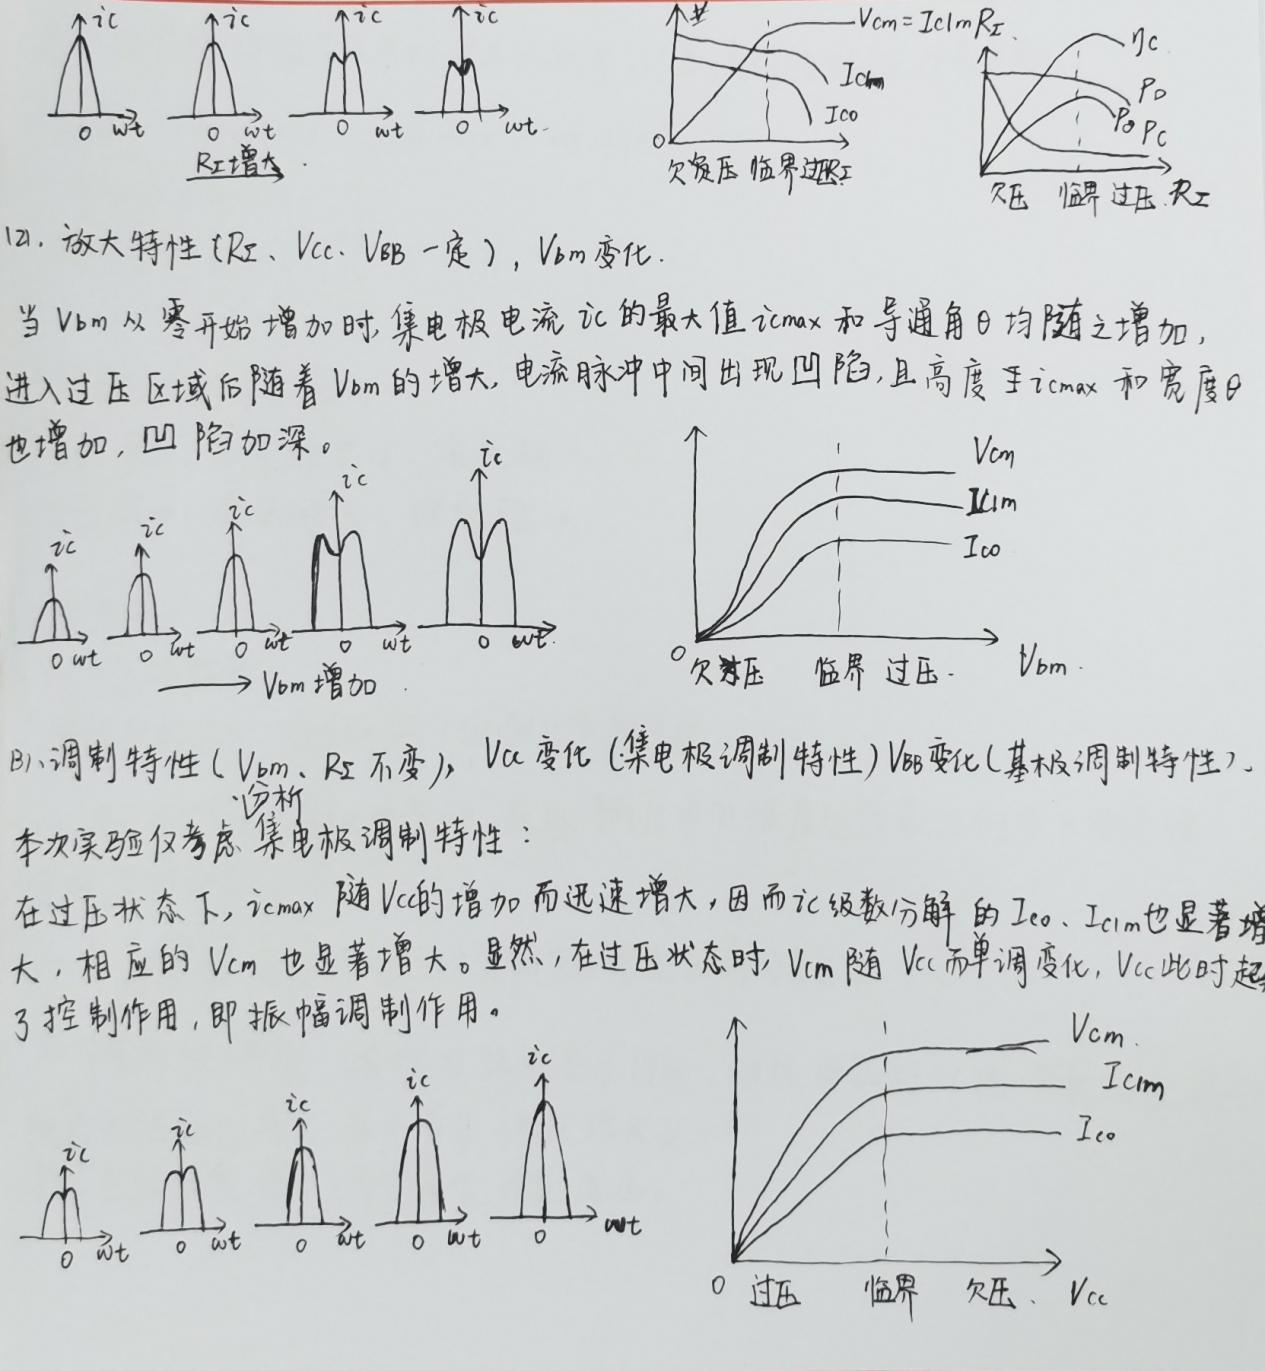 ic ic ic ic
0 wt 0 wt 0 wt 0 wt
RΣ增大
Vcm=Ic1mRΣ
Ic1m
Ico
0
欠压 临界 过压 RΣ
ηc
PD
Po Pc
欠压 临界 过压 RΣ
(2). 放大特性(RΣ、Vcc、VBB 一定), Vbm变化.
当Vbm从零开始增加时,集电极电流ic的最大值icmax和导通角θ均随之增加,
进入过压区域后随着Vbm的增大,电流脉冲中间出现凹陷,且高度icmax和宽度θ
也增加,凹陷加深。
ic ic ic ic ic
0 wt 0 wt 0 wt 0 wt 0 wt
Vbm增加
Vcm
Ic1m
Ico
0
欠压 临界 过压. Vbm.
(3)、调制特性(Vbm、RΣ不变), Vcc变化(集电极调制特性)VBB变化(基极调制特性).
分析
本次实验仅考虑集电极调制特性:
在过压状态下,icmax随Vcc的增加而迅速增大,因而ic级数分解的Ico、Ic1m也显著增
大,相应的Vcm也显著增大。显然,在过压状态时,Vcm随Vcc而单调变化,Vcc此时起
了控制作用,即振幅调制作用。
ic ic ic ic ic
0 wt 0 wt 0 wt 0 wt 0 wt
Vcm.
Ic1m
Ico
0 过压 临界 欠压. Vcc